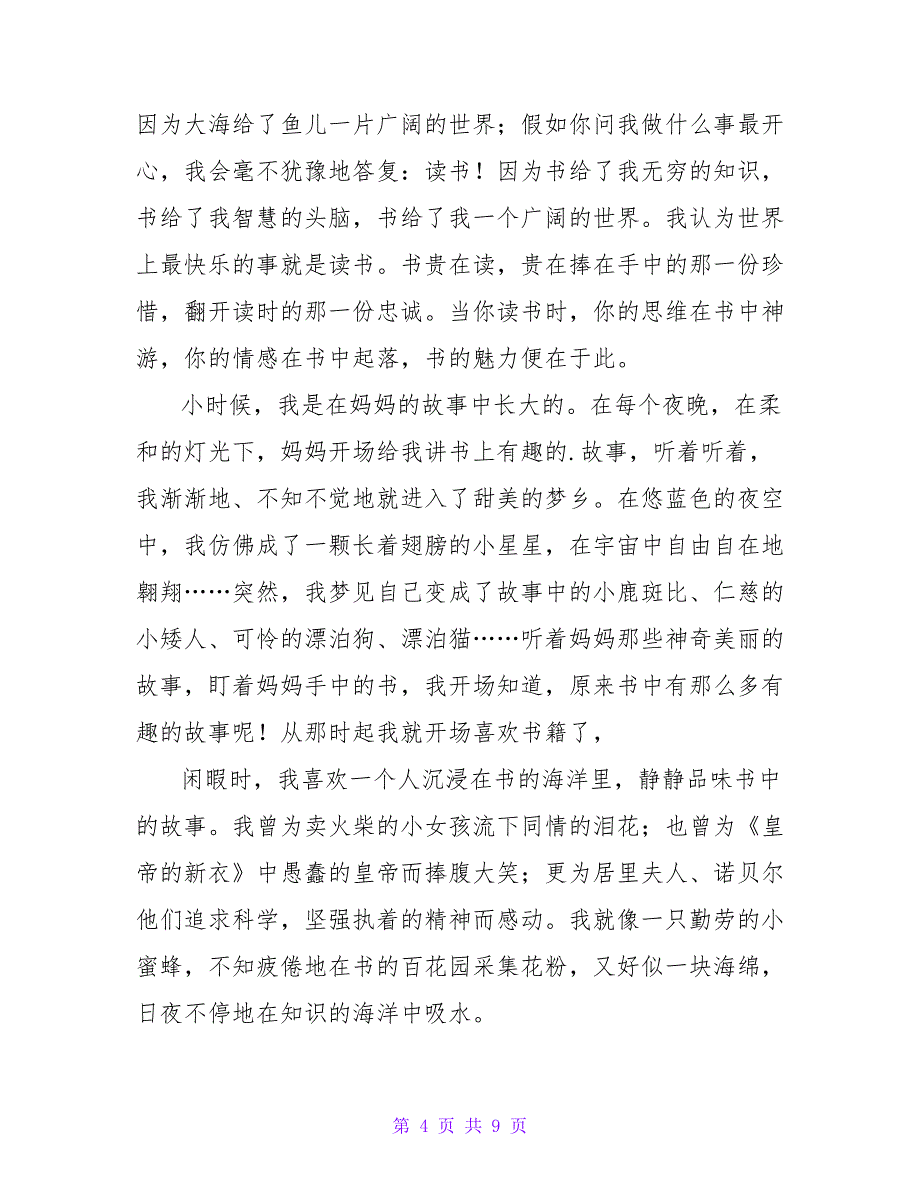 因为大海给了鱼儿一片广阔的世界；假如你问我做什么事最开
心，我会毫不犹豫地答复：读书！因为书给了我无穷的知识，
书给了我智慧的头脑，书给了我一个广阔的世界。我认为世界
上最快乐的事就是读书。书贵在读，贵在捧在手中的那一份珍
惜，翻开读时的那一份忠诚。当你读书时，你的思维在书中神
游，你的情感在书中起落，书的魅力便在于此。
小时候，我是在妈妈的故事中长大的。在每个夜晚，在柔
和的灯光下，妈妈开场给我讲书上有趣的.故事，听着听着，
我渐渐地、不知不觉地就进入了甜美的梦乡。在悠蓝色的夜空
中，我仿佛成了一颗长着翅膀的小星星，在宇宙中自由自在地
翱翔……突然，我梦见自己变成了故事中的小鹿斑比、仁慈的
小矮人、可怜的漂泊狗、漂泊猫……听着妈妈那些神奇美丽的
故事，盯着妈妈手中的书，我开场知道，原来书中有那么多有
趣的故事呢！从那时起我就开场喜欢书籍了，
闲暇时，我喜欢一个人沉浸在书的海洋里，静静品味书中
的故事。我曾为卖火柴的小女孩流下同情的泪花；也曾为《皇
帝的新衣》中愚蠢的皇帝而捧腹大笑；更为居里夫人、诺贝尔
他们追求科学，坚强执着的精神而感动。我就像一只勤劳的小
蜜蜂，不知疲倦地在书的百花园采集花粉，又好似一块海绵，
日夜不停地在知识的海洋中吸水。
第 4 页 共 9 页